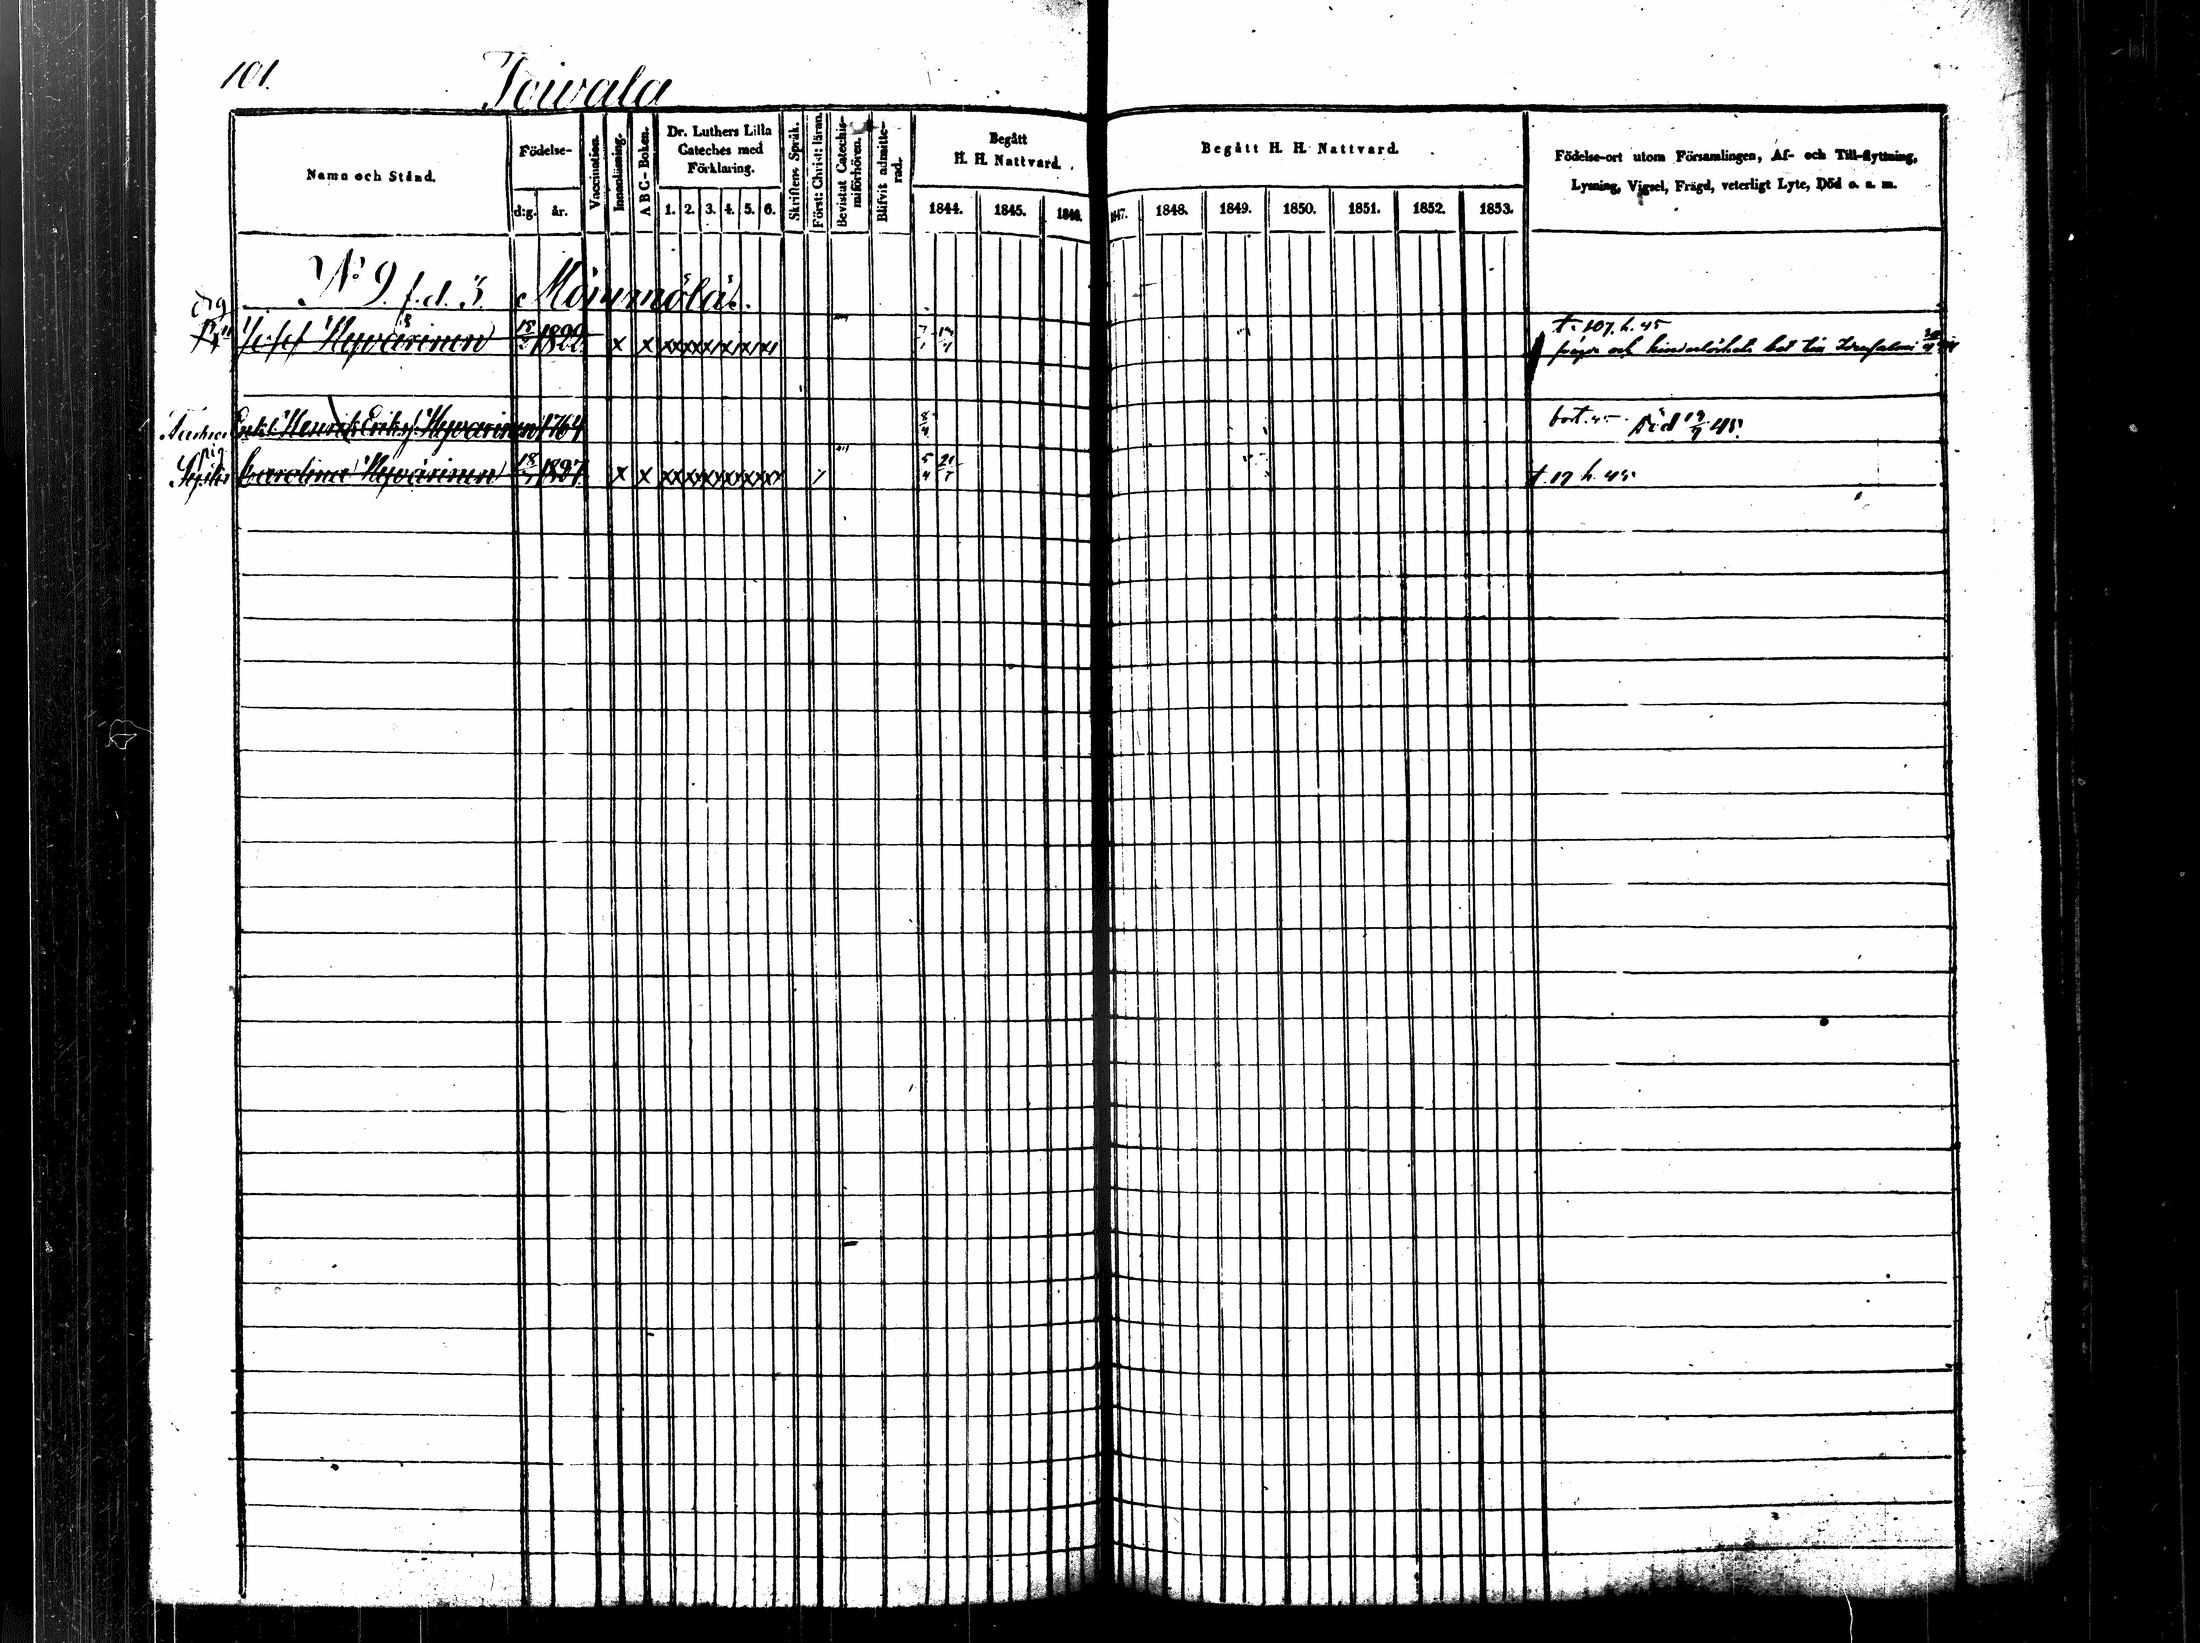 101.
Toivala
Namn och Stånd.
Födelse-
d:g. år.
Vaccination.
Innanläsning.
A B C-Boken.
Dr. Luthers Lilla
Cateches med
Förklaring.
1. 2. 3. 4. 5. 6.
Skriftens Språk.
Först: Christ: läran.
Bevistat Catechis-
miförhören.
Blifvit admitte-
rad.
Begått
H. H. Nattvard.
1844. 1845. 1846.
Begått H. H. Nattvard.
1847. 1848. 1849. 1850. 1851. 1852. 1853.
Födelse-ort utom Församlingen, Af- och Till-flyttning,
Lysning, Vigsel, Frägd, veterligt Lyte, Död o. s. m.
No 9. f. d. 3. Mömmölä
Josef Hyvärinen 1822 x x t. 107. h. 45
och hinderlöshets bet
Henrik Eriks. Hyvärinen 1764 8/4 bort. 45 död 19/9 45.
pig
Carolina Hyvärinen 18 1827 x x 5/4 t. 17 h. 45